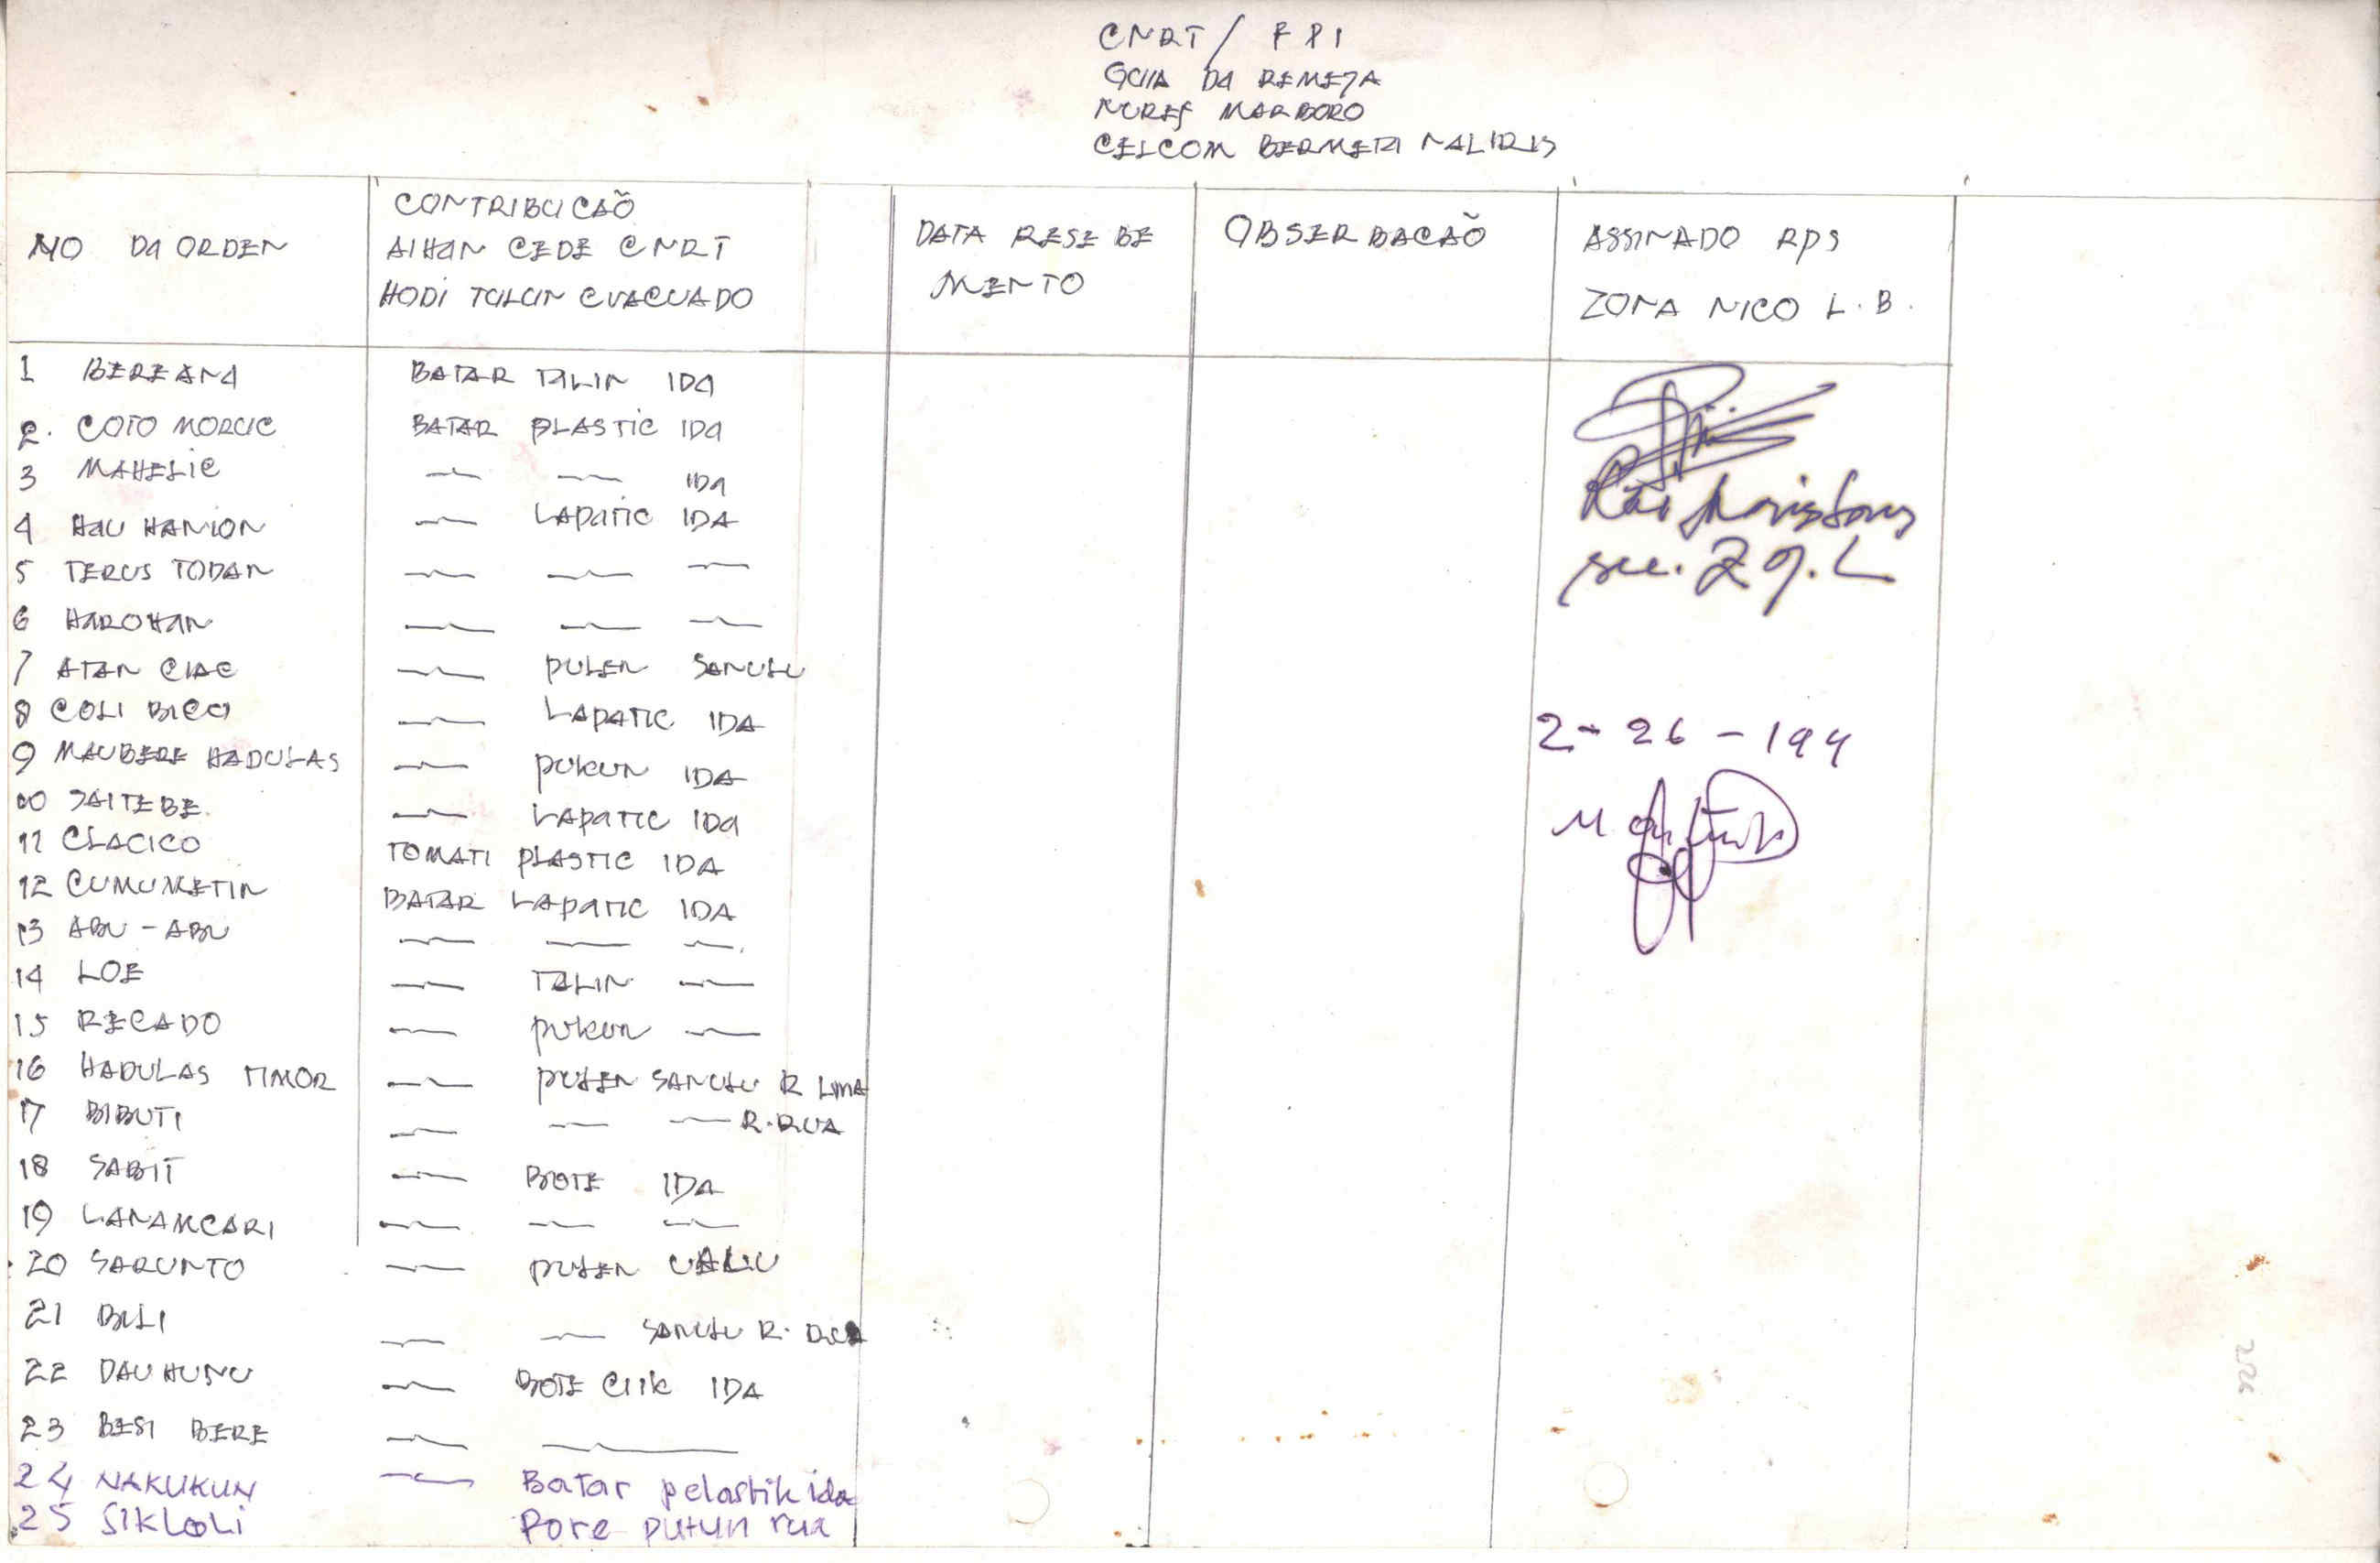 CNRT / FPI
GUIA DA REMEJA
NUREF MARBORO
CELCOM BERMERI NALIRIS
NO DA ORDEN
CONTRIBUCAÕ
AIHAN CEDE CNRT
HODI TULUN EVACUADO
DATA RESE BE
MENTO
OBSER BACAÕ
ASSINADO RPS
ZONA NICO L. B.
1 BEREANA BATAR TALIN IDA
2. COTO MORUC BATAR PLASTIC IDA
3 MAHELIC — — IDA
4 HAU HANION — LAPATIC IDA
5 TERUS TODAN — — —
6 HAROHAN — — —
7 ATAN CIAC — PULEN SANULU
8 COLI BICO — LAPATIC IDA
9 MAUBERE HADULAS — PUKUN IDA
10 SAITEBE. — LAPATIC IDA
11 CLACICO TOMATI PLASTIC IDA
12 CUMUMETIN BATAR LAPATIC IDA
13 ABU - ABU — — —
14 LOE — TALIN —
15 RECADO — PUKUN —
16 HADULAS TIMOR — PULEN SANULU R LIMA
17 BIBUTI — — — R. RUA
18 SABIT — BOTE IDA
19 LANAMCARI — — —
20 SARUNTO — PULEN UALU
21 BILI — — SANULU R. RUA
22 DAU HUNU — BOTE CIIK IDA
23 BESI BERE — —
24 NAKUKUN — Batar pelastik ida
25 SIKLOLI Fore putun rua
sec. Z9.L
2 - 26 - 194
2526